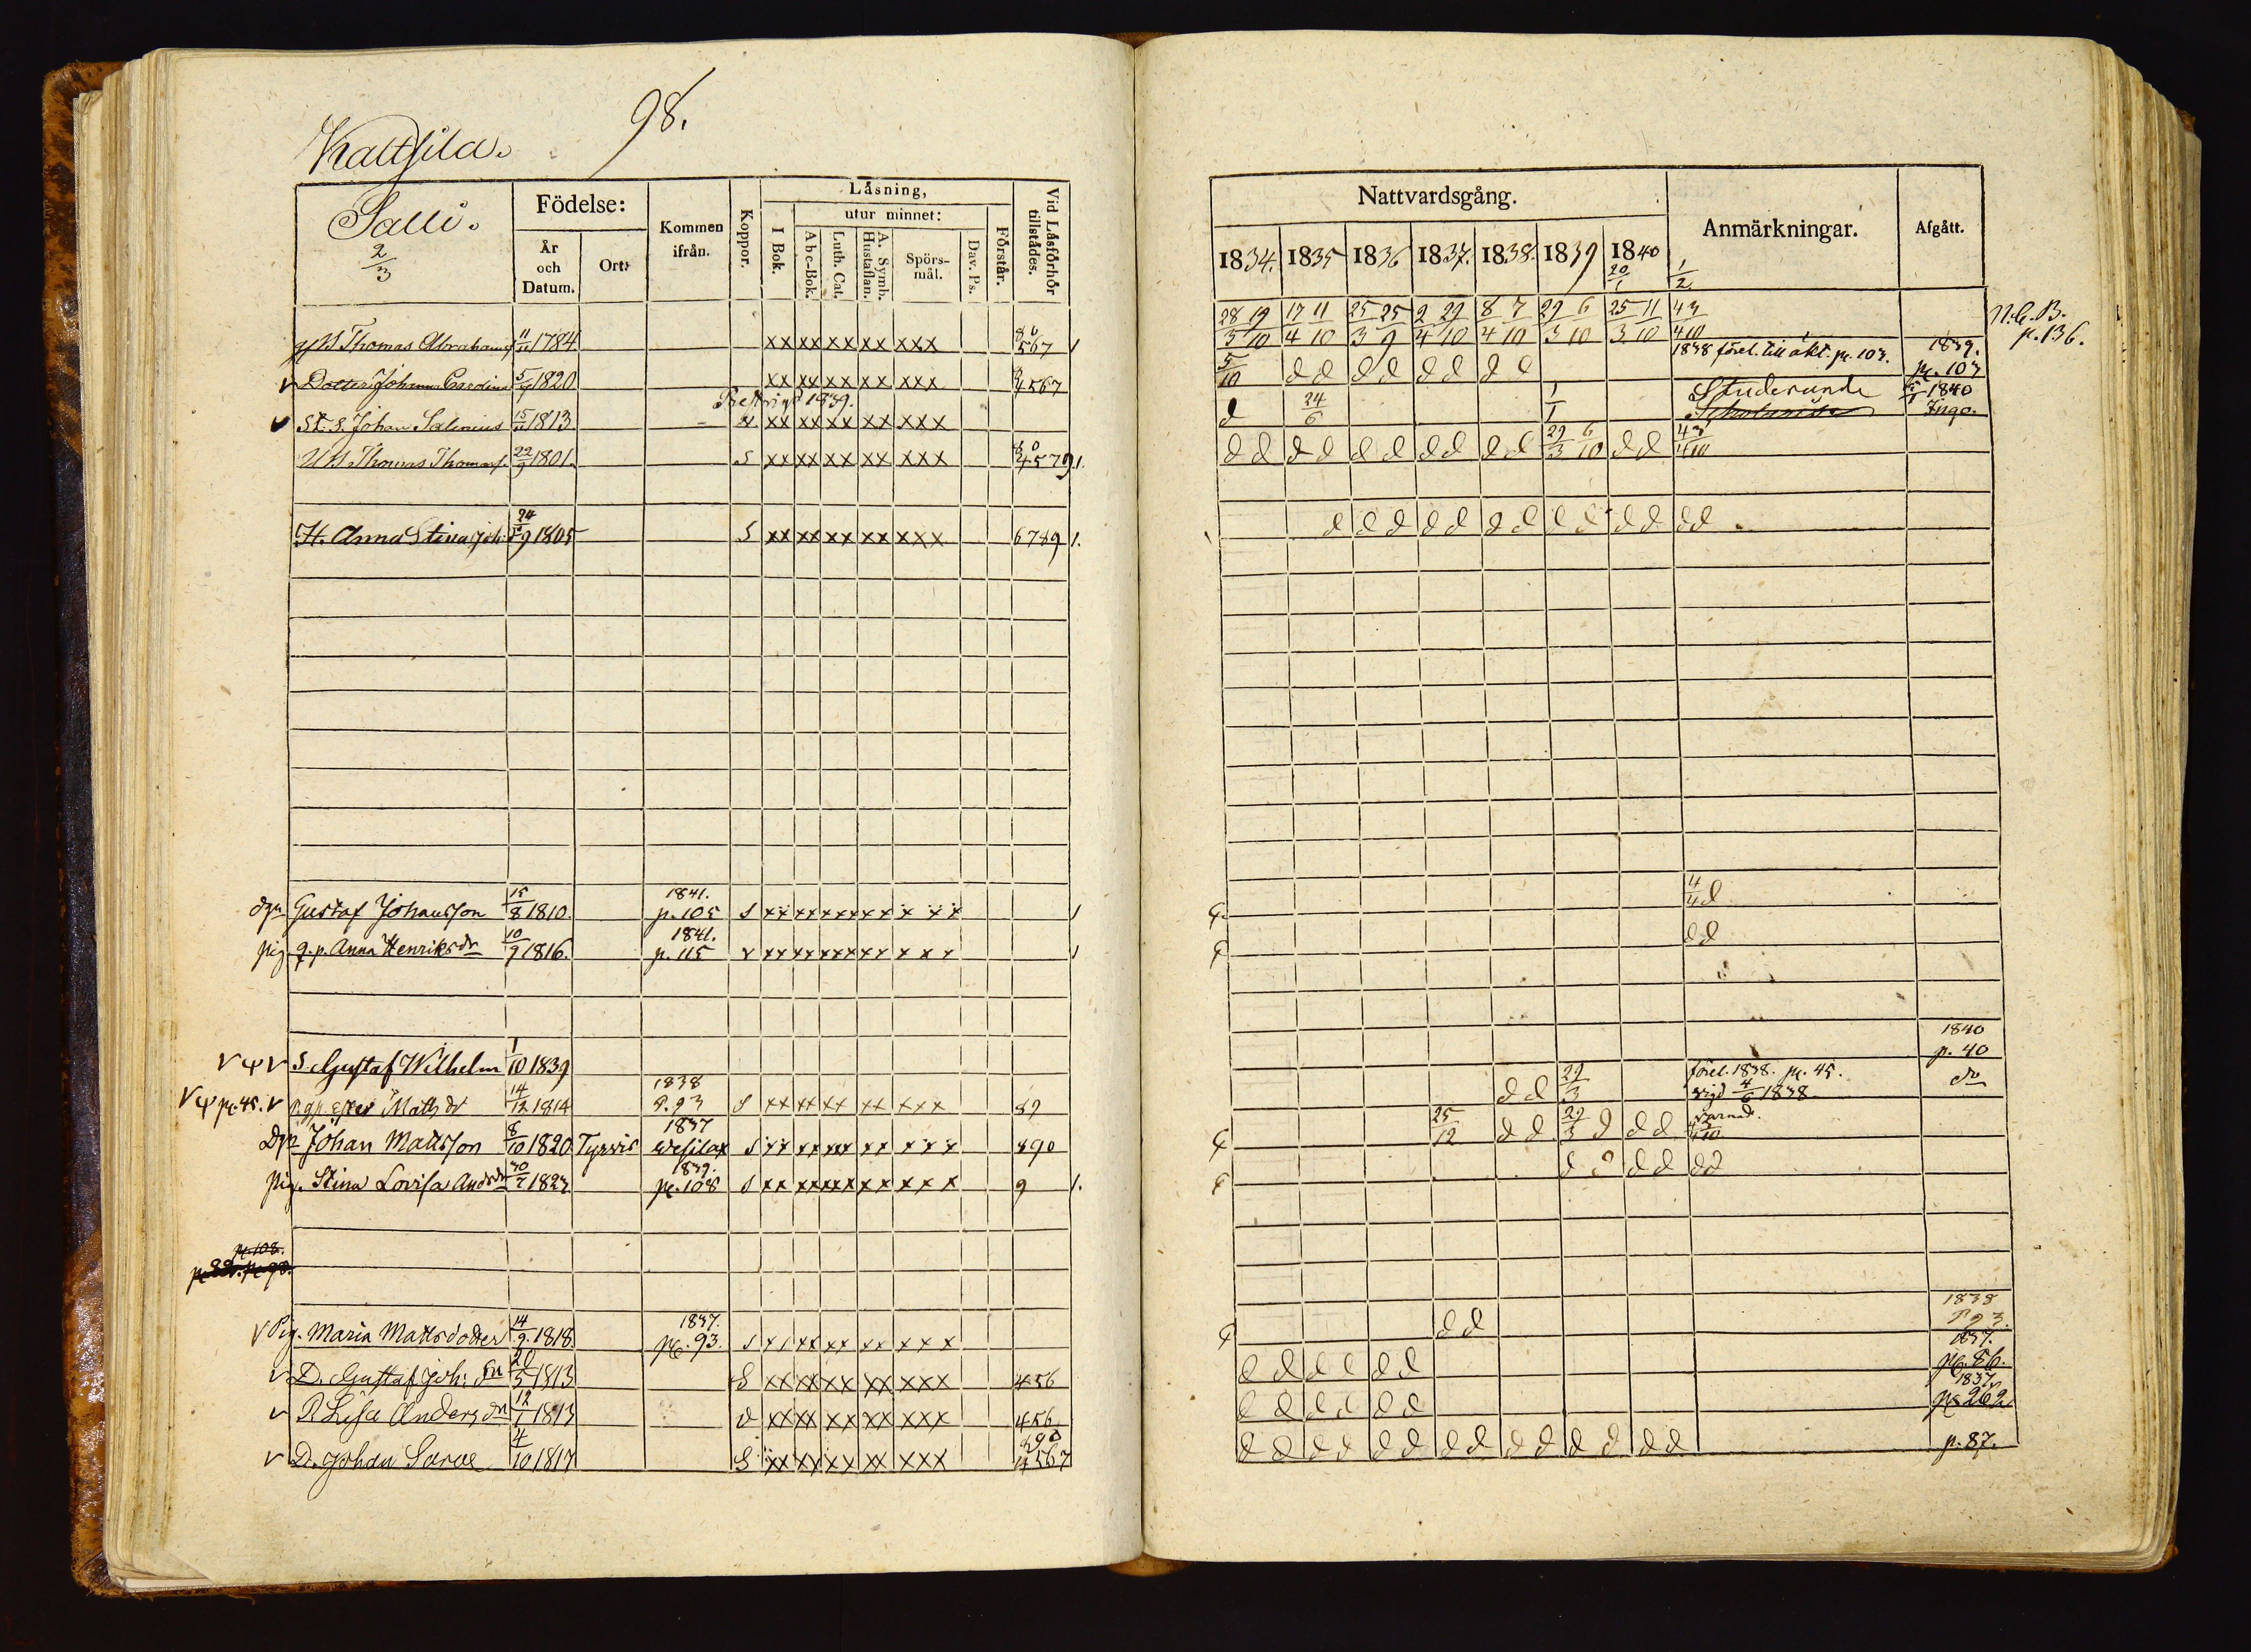 98.
Kattsila.
Salli.
2/3
Födelse:
År och Datum.
Ort:
Kommen ifrån.
Koppor.
Låsning,
I Bok.
utur minnet:
Abc-Bok.
Luth. Cat.
A. Symb. Hustaflan.
Spörsmål.
Dav. Ps.
Förstår.
Vid Låsförhör tillstådes.
Thomas Abrahamss 11/11 1784 xx xx xx xx xxx 567 1
v Dotter Johanna Carolina 5/9 1820 xx xx xx xx xxx 4567
Prestvigd 1839.
v St. S. Johan Salenius 15/11 1813 v xx xx xx xx xxx
Thomas Thomass. 22/9 1801. S xx xx xx xx xxx 4579 1.
H. Anna Stina Joh: 24/9 1805 S xx xx xx xx xxx 6789 1.
1841.
dgn Gustaf Johansson 15/8 1810. p. 105 S xx xx xx xx x x x 1
1841.
pig. g. p. Anna Henriksdr 10/9 1816. p. 115 v xx xx xx xx x x x 1
v v S. Gustaf Wilhelm 1/10 1839
1838
v p. 45. v Matsdr 14/12 1814 P. 93 S xx xx xx xxx 89
1837
Dgn Johan Mattsson 8/10 1820 Tyrvis Wesilax S xx xx xx xx x x x 890
1839.
pig. Stina Lovisa Andrdr 30/7 1823 p. 108 S xx xx xx xx x x x 9 1.
p. 108.
p. 88. p. 90.
1837.
v Pig. Maria Mattsdotter 14/9 1818. p. 93. S xx xx xx xx x x x
v D. Gustaf Joh: Sn 20/5 1813 S xx xx xx xx xxx 456
v P. Lisa Andersdr 12/1 1813 v xx xx xx xx xxx 456
890
v D. Johan Sarae 4/10 1817 S xx xx xx xx xxx 4567
Nattvardsgång.
Anmärkningar.
Afgått.
1834. 1835 1836 1837. 1838. 1839 1840
20/1 1/2
28/3 19/10 17/4 11/10 25/3 25/9 2/4 29/10 8/4 7/10 29/3 6/10 25/3 11/10 4/4 3/10
N. C. B. p. 136.
5/10 d d d d d d d d 1838 förel. till äkt. p. 103. 1839. p. 103
d 24/6 1/1 Studerande 1840 Ingo.
d d d d d d d d d d 29/3 6/10 d d 4/4 3/10
d d d d d d d d d d d d d
4/4 d
d d
1840
p. 40
d d 29/3 förel. 1838. p. 45. vigd 4/6 1838. do
25/12 d d 29/3 d d d varnad.
d d d d d d
d d 1838 P. 93.
d d d d d d 1837. p. 86.
d d d d d d 1837. p. 262
d d d d d d d d d d d d d d p. 87.